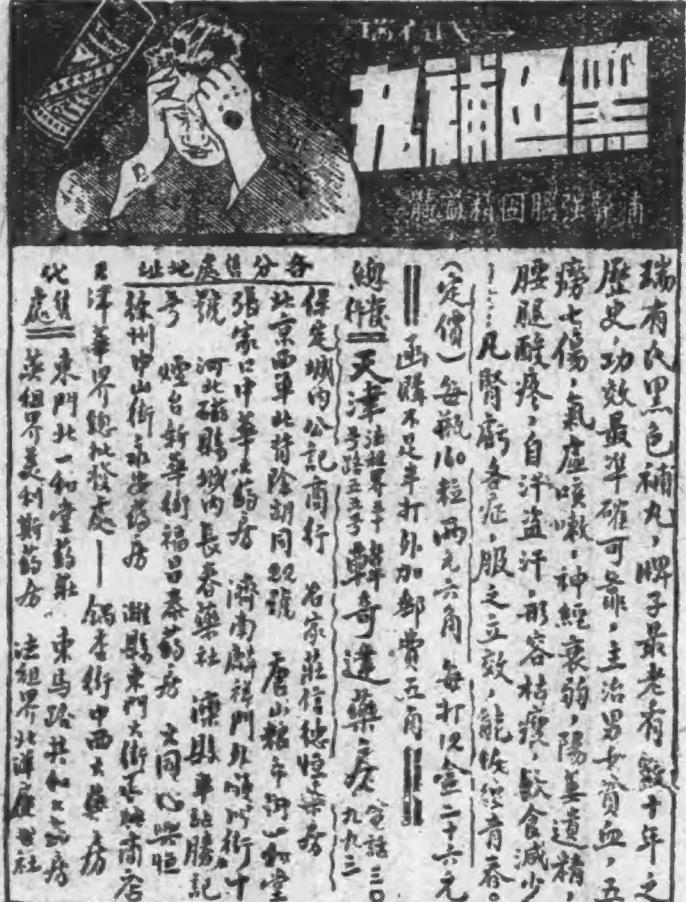 瑞有氏
黑色補丸
補腎強腦固精益髓
瑞有氏黑色補丸，牌子最老有數十年之
歷史，功效最準確可靠，主治男女貧血，五
癆七傷，氣虛咳嗽，神經衰弱，陽萎遺精，
腰腿酸疼，自汗盜汗，形容枯瘦，飲食減少
……凡腎虧各症，服之立效，能恢復青春。
（定價）每瓶160粒兩元六角 每打汎壹二十六元
函購不足半打外加郵費五角
總經 天津法租界 韓奇逢藥房 電話三〇九九三
各分售處地址
保定城內公記商行 石家莊信德恒藥房
北京西單北背陰胡同22號 唐山糧市街一和堂
張家口中華大藥房 濟南麟祥門外
號 河北磁縣城內長春藥社 灤縣車站勝記
号 煙台新華街福昌泰藥房 大同
徐州中山街永安藥房 濰縣東門大街
天津華界總批發處 鍋店街中西大藥房
代售處 東門北一和堂藥莊 東馬路共和大藥房
英租界美利斯藥房 法租界北洋